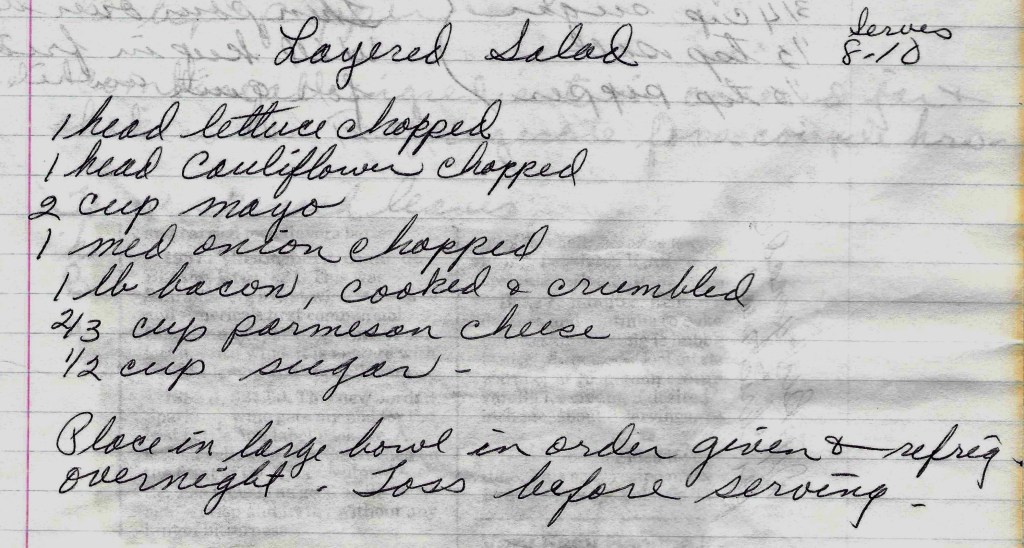 Layered Salad
Serves
8-10
1 head lettuce chopped
1 head cauliflower chopped
2 cup mayo
1 med onion chopped
1 lb bacon, cooked & crumbled
2/3 cup parmeson cheese
1/2 cup sugar -
Place in large bowl in order given & refrig.
overnight. Toss before serving.